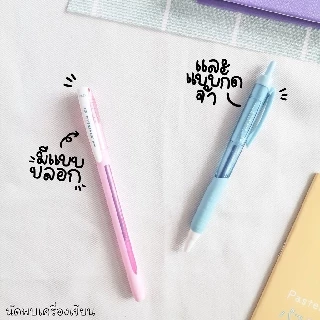 และ
แบบกด
จ้า
มีแบบ
ปลอก
นัดพบเครื่องเขียน
Paste